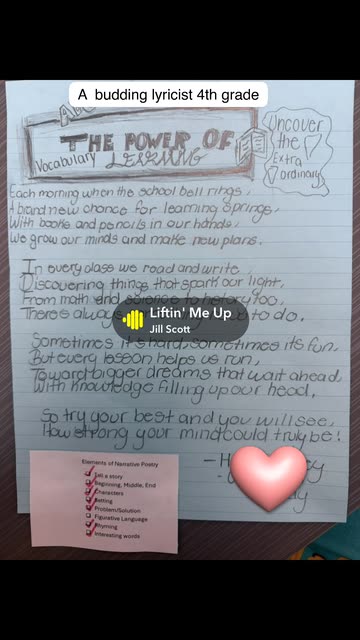 A budding lyricist 4th grade
ABC
THE POWER OF
Vocabulary LEARNING
Uncover
the
Extra
ordinary
Each morning when the school bell rings,
A brand new chance for learning springs,
With books and pencils in our hands,
We grow our minds and make new plans.
In every class we read and write,
Discovering things that spark our light,
From math and science to history too,
There's always to do.
Liftin' Me Up
Jill Scott
Sometimes it's hard, sometimes its fun,
But every lesson helps us run,
Toward bigger dreams that wait ahead,
With knowledge filling up our head,
So try your best and you will see,
How strong your mind could truly be!
Elements of Narrative Poetry
Tell a story
Beginning, Middle, End
Characters
Setting
Problem/Solution
Figurative Language
Rhyming
Interesting words